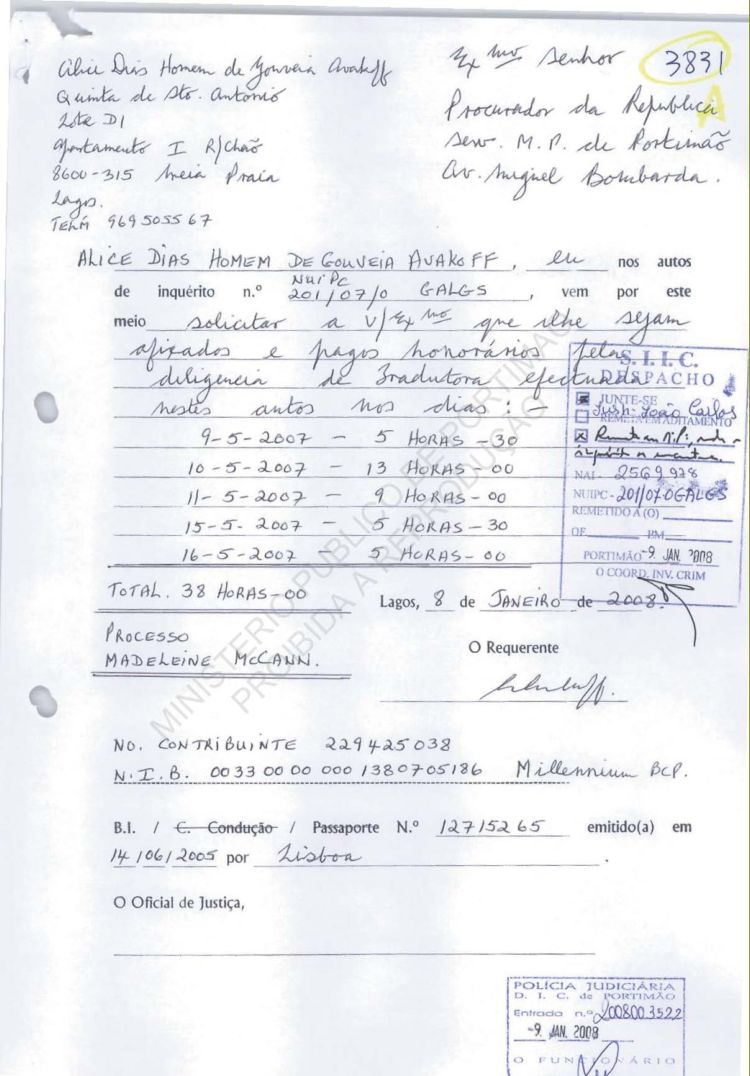 Alice Dias Homem de Gouveia Avakoff
Quinta de Sto. António
Lote D1
Apartamento I R/Chão
8600-315 Meia Praia
Lagos.
TELM 969505567
Ex mo Senhor
3831
A
Procurador da Republica
Serv. M. P. de Portimão
Av. Miguel Bombarda.
ALICE DIAS HOMEM DE GOUVEIA AVAKOFF, eu nos autos
NUIPC
de inquérito n.º 201/07/0 GALGS, vem por este
meio solicitar a V/Ex mo que lhe sejam
afixados e pagos honorários pelas
diligencia de Tradutora efectuada
nestes autos nos dias : -
9-5-2007 - 5 HORAS - 30
10-5-2007 - 13 HORAS - 00
11-5-2007 - 9 HORAS - 00
15-5-2007 - 5 HORAS - 30
16-5-2007 - 5 HORAS - 00
TOTAL. 38 HORAS - 00
Lagos, 8 de JANEIRO de 2008.
S. I. I. C.
DESPACHO
JUNTE-SE
João Carlos
REMETA EM ADITAMENTO
NAI - 2569978
NUIPC - 201/07.0GALGS
REMETIDO A (O)
OF. EM
PORTIMÃO -9. JAN. 2008
O COORD. INV. CRIM
PROCESSO
MADELEINE McCANN.
O Requerente
MINISTERIO PUBLICO DE PORTIMAO
PROIBIDA A REPRODUÇÃO
NO. CONTRIBUINTE 229425038
N.I.B. 0033 00 00 000 1380705186 Millennium BCP.
B.I. / C. Condução / Passaporte N.º 12715265 emitido(a) em
14/06/2005 por Lisboa.
O Oficial de Justiça,
POLÍCIA JUDICIÁRIA
D. I. C. de PORTIMÃO
Entrada n.º 200800.3522
-9. JAN. 2008
O FUNCIONÁRIO